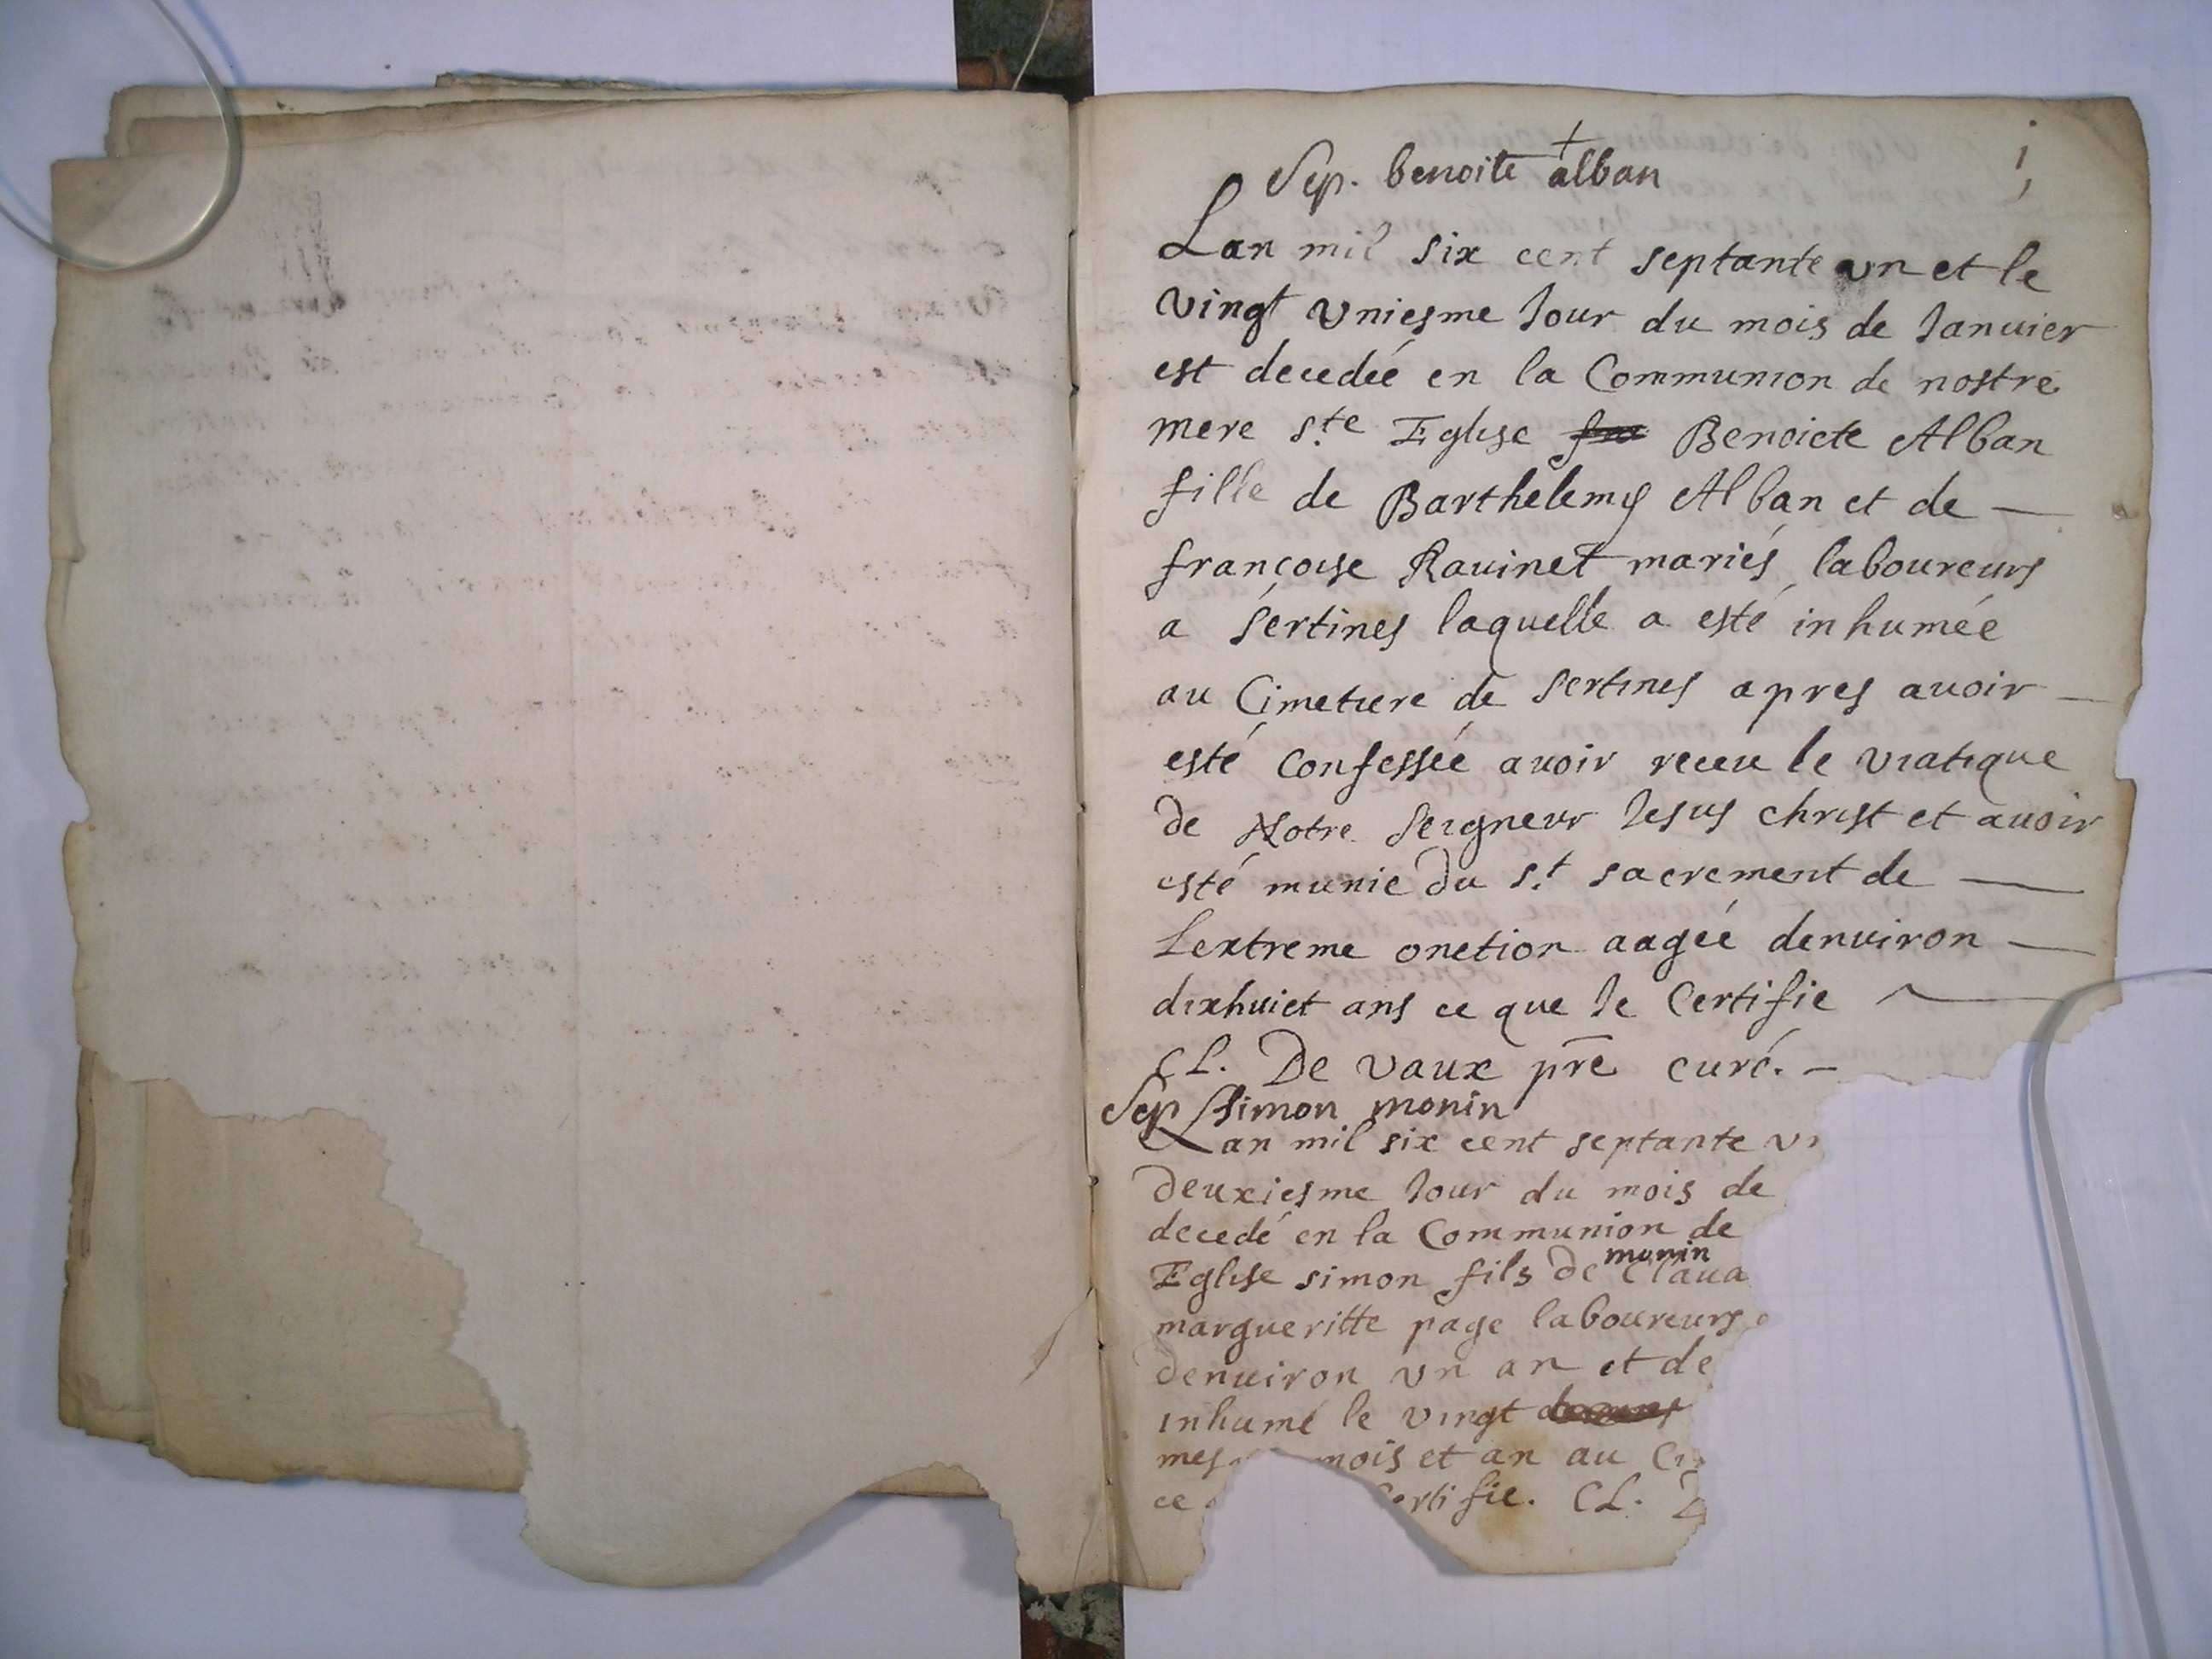 Sep. benoite alban
Lan mil six cent septante un et le
vingt vniesme Jour du mois de Januier
est decedeé en la Communion de nostre
mere s.te Eglise Benoicte Alban
fille de Barthelemy Alban et de —
françoise Rauinet mariés laboureurs
a Sertines laquelle a esté inhumée
au Cimetiere de Sertines apres auoir —
esté Confesseé auoir receu le viatique
de Notre Seigneur Jesus christ et auoir
esté munie du s.t sacrement de —
Lextreme onction aageé denuiron —
dixhuict ans ce que Je Certifie
CL. De vaux pre curé. —
Sep Simon monin
Lan mil six cent septante v
deuxiesme Jour du mois de
decedé en la Communion de
monin
Eglise simon fils de Claua
margueritte page laboureurs
denuiron vn an et de
inhumé le vingt
mes mois et an au Ci
ce ertifie. CL. D